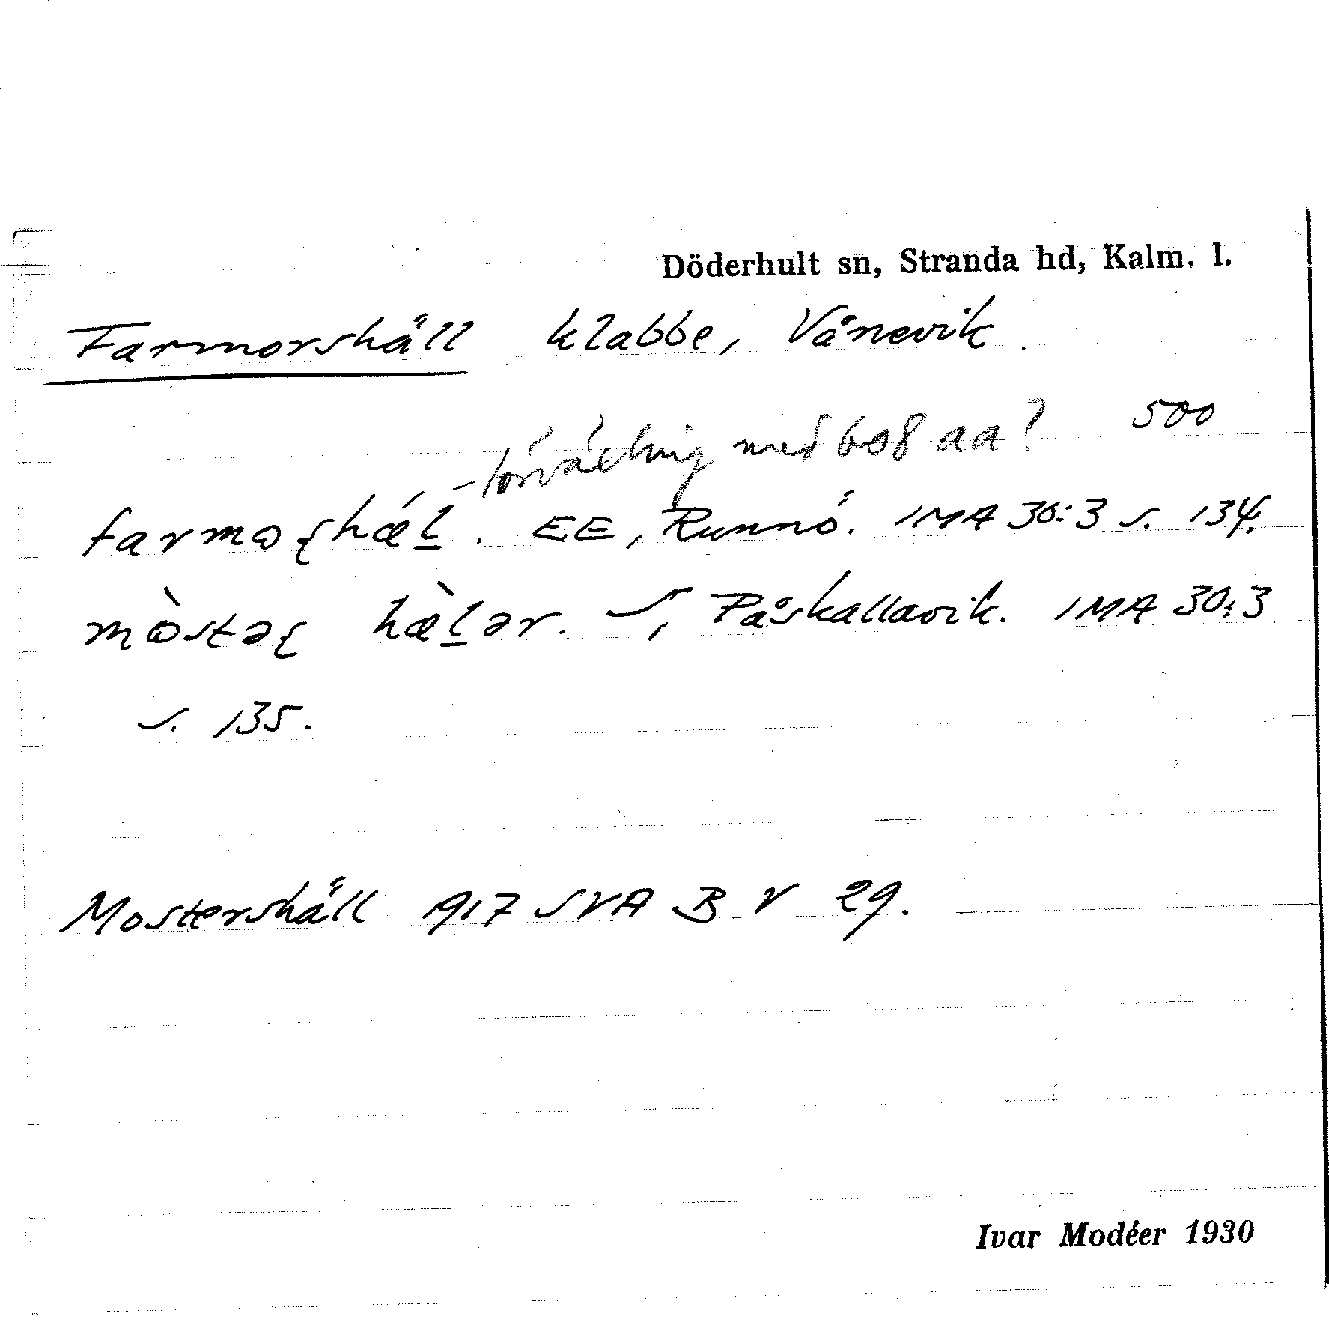 Döderhult sn, Stranda hd, Kalm. l.
Farmorshäll klabbe, Vånevik.
500
- förväxling med 608 aa?
farmoʂhæl̲. EE, Runnö. IMA 30:3 s. 134.
mòstəʂ hæ̀l̲ər. S, Påskallavik. IMA 30:3
s. 135.
Mostershäll 1917 SVA B V 29.
Ivar Modéer 1930